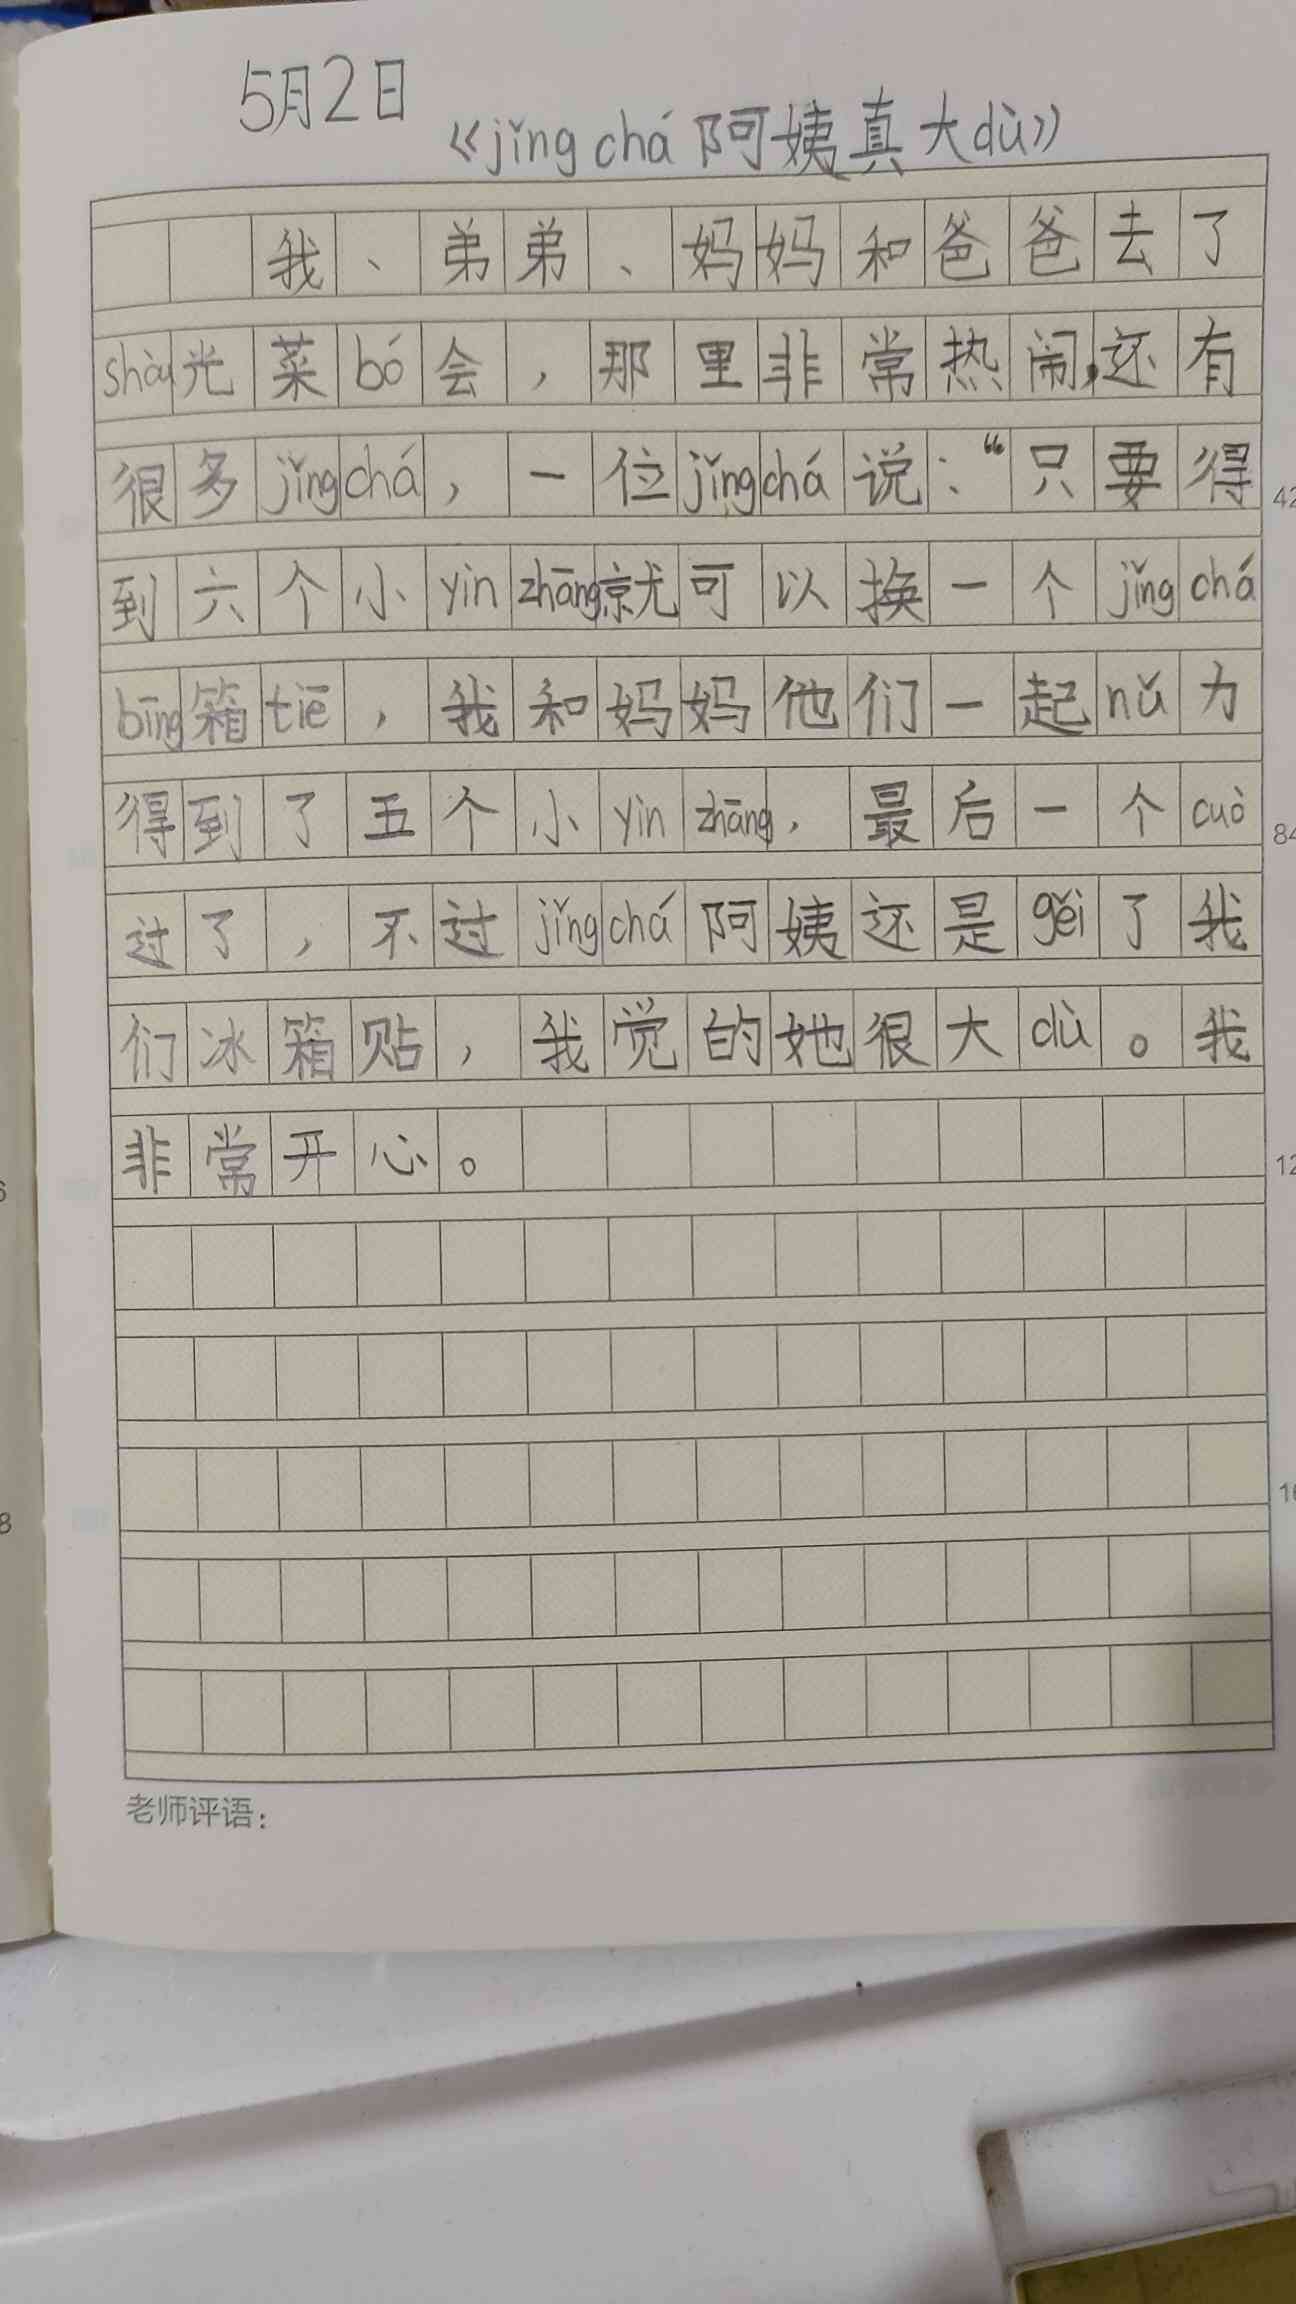 5月2日
《jǐng chá 阿姨真大dù》
我、弟弟、妈妈和爸爸去了
shòu光菜bó会，那里非常热闹,还有
很多jǐng chá，一位jǐng chá说：“只要得
42
到六个小yìn zhāng就可以换一个jǐng chá
bīng箱tiē，我和妈妈他们一起nǔ力
得到了五个小yìn zhāng，最后一个cuò
84
过了，不过jǐng chá阿姨还是gěi了我
们冰箱贴，我觉的她很大dù。我
非常开心。
12
16
老师评语：
6
8